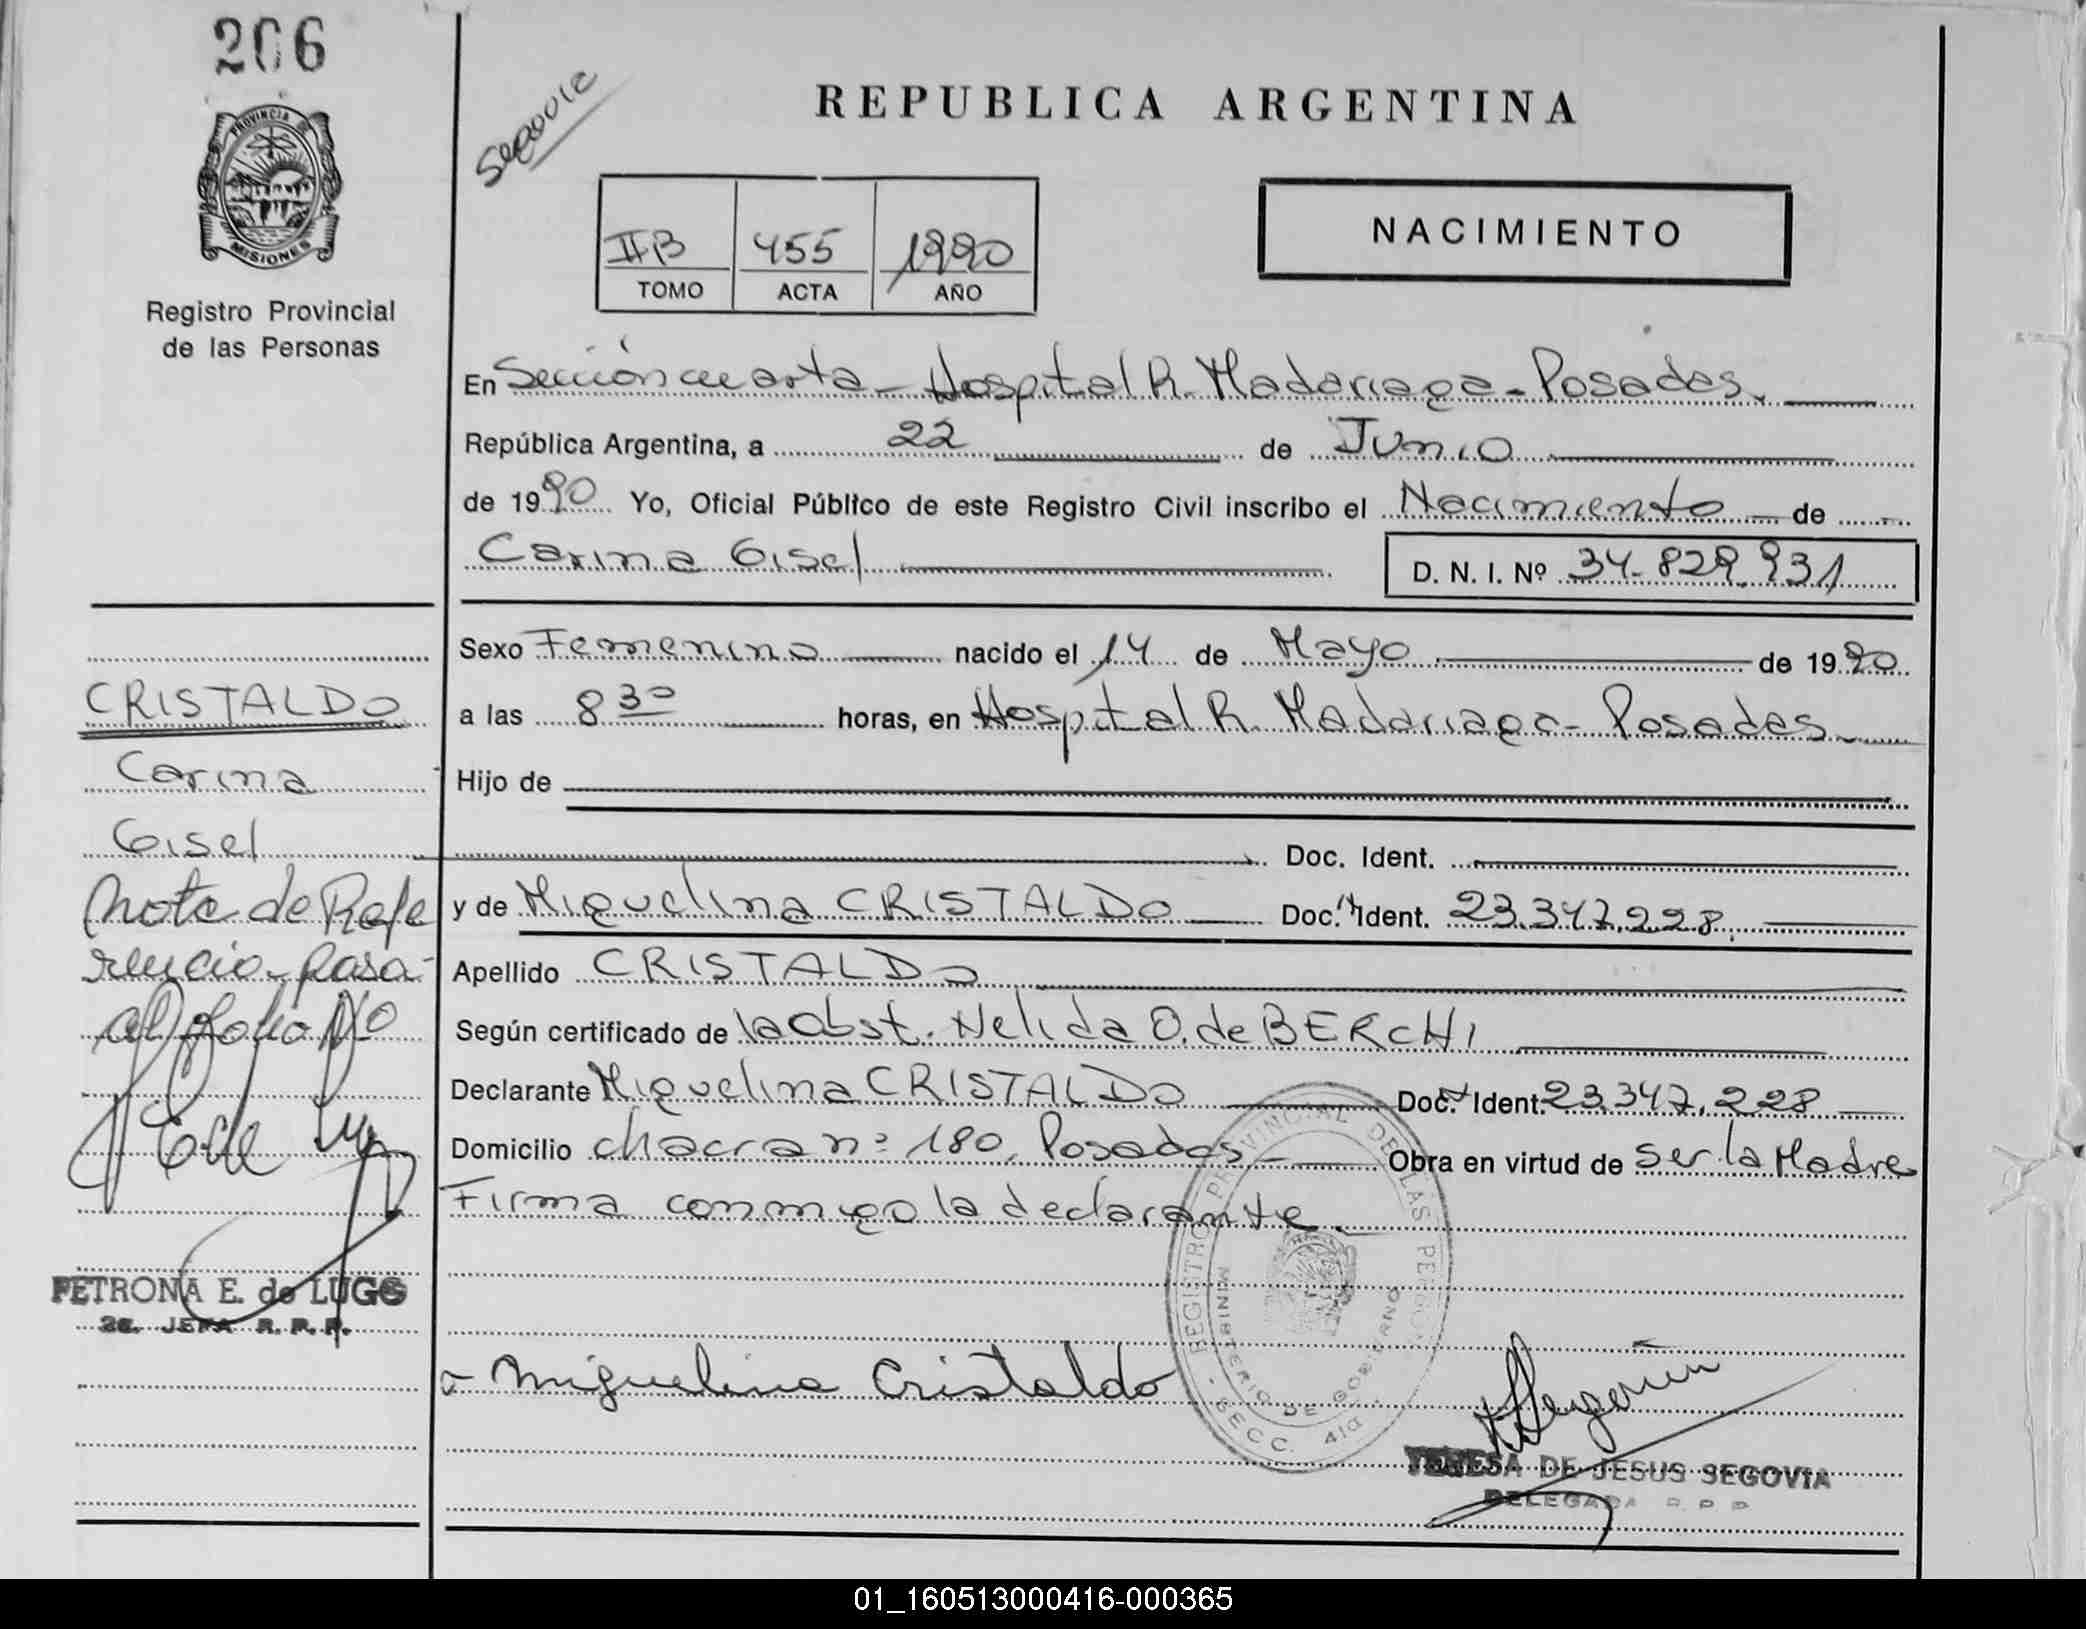 206
PROVINCIA DE
MISIONES
Registro Provincial
de las Personas
REPUBLICA ARGENTINA
NACIMIENTO
IIB 455 1990
TOMO ACTA AÑO
En Sección cuarta - Hospital R. Madariaga - Posadas.
República Argentina, a 22 de Junio
de 1990 Yo, Oficial Público de este Registro Civil inscribo el Nacimiento de
Carina Gisel D. N. I. Nº 34.829.931
Sexo Femenino nacido el 14 de Mayo de 1990
a las 8 30 horas, en Hospital R. Madariaga - Posadas
Hijo de
Doc. Ident.
y de Miguelina CRISTALDO Doc. Ident. 23.347.228
Apellido CRISTALDO
Según certificado de la Obst. Nelida O. de BERCHI
Declarante Miguelina CRISTALDO Doc. Ident. 23.347.228
Domicilio chacra nº 180, Posadas Obra en virtud de ser la Madre
Firma conmigo la declarante.
Miguelina Cristaldo
REGISTRO PROVINCIAL DE LAS PERSONAS
MINISTERIO DE GOBIERNO
SECC. 4ta
TERESA DE JESUS SEGOVIA
DELEGADA R. P. P.
CRISTALDO
Carina
Gisel
Nota de Refe
rencia pasa
al folio Nº
PETRONA E. de LUGO
2a. JEFA R. P. P.
01_160513000416-000365